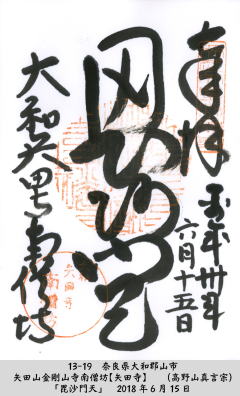 奉拝
平成三十年
六月十五日
毘沙門天
大和矢田南僧坊
矢田寺
13-19 奈良県大和郡山市
矢田山金剛山寺南僧坊【矢田寺】 (高野山真言宗)
「毘沙門天」 2018年6月15日